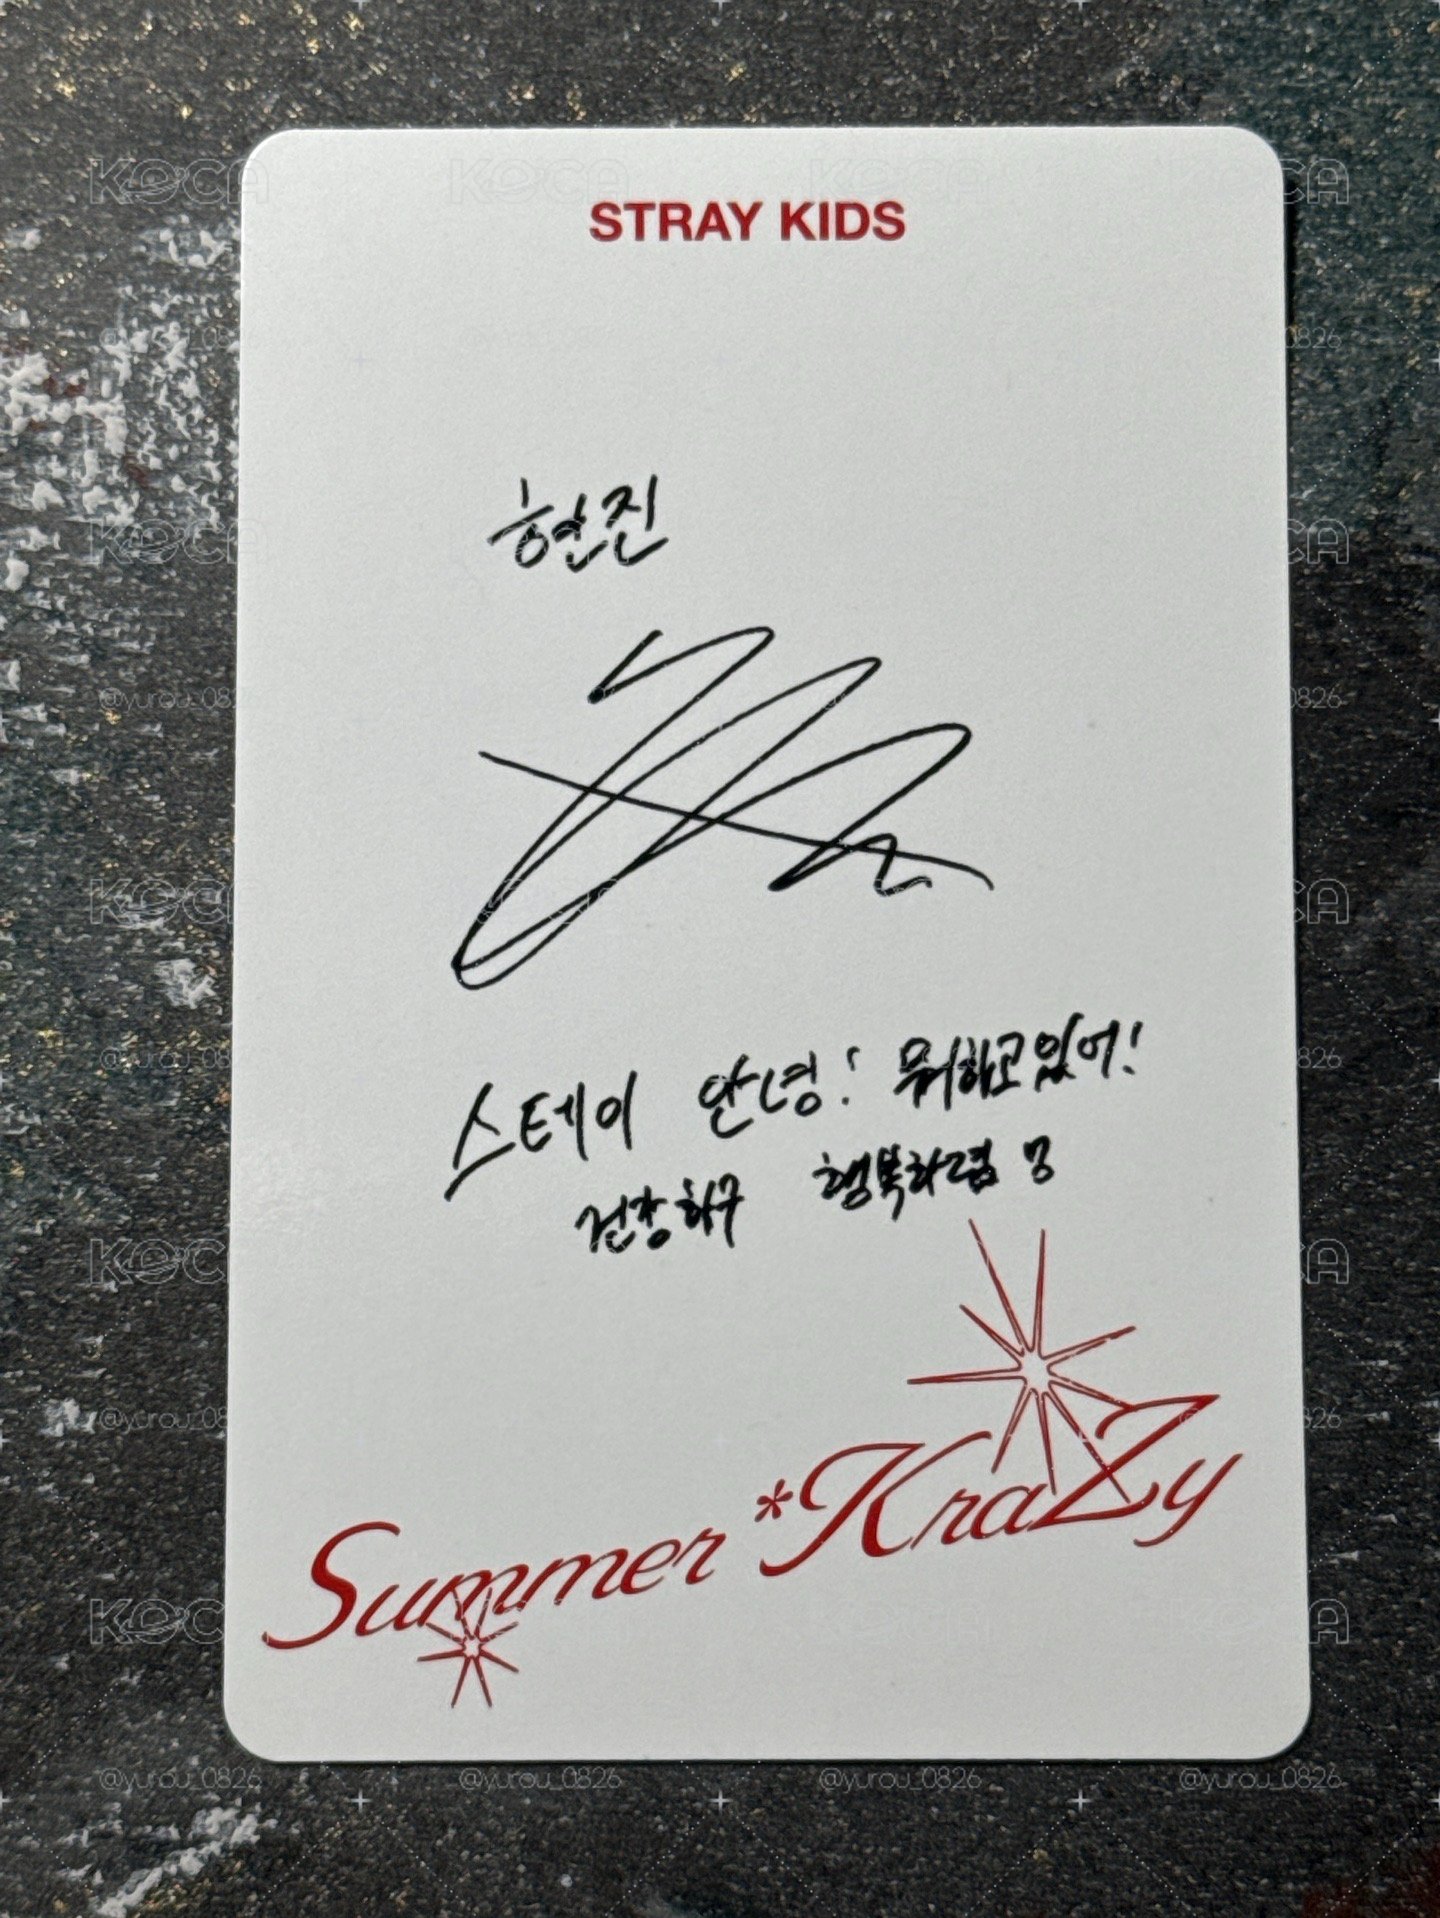 STRAY KIDS
현진
스테이 안녕! 뭐하고있어!
건강하구 행복하렴
Summer*KraZy
KOCA
@yurou_0826